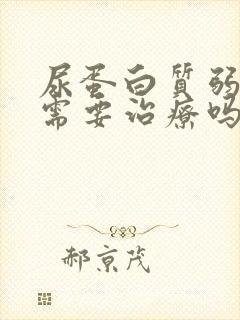 尿蛋白質弱
需要治療吗
郝京茂